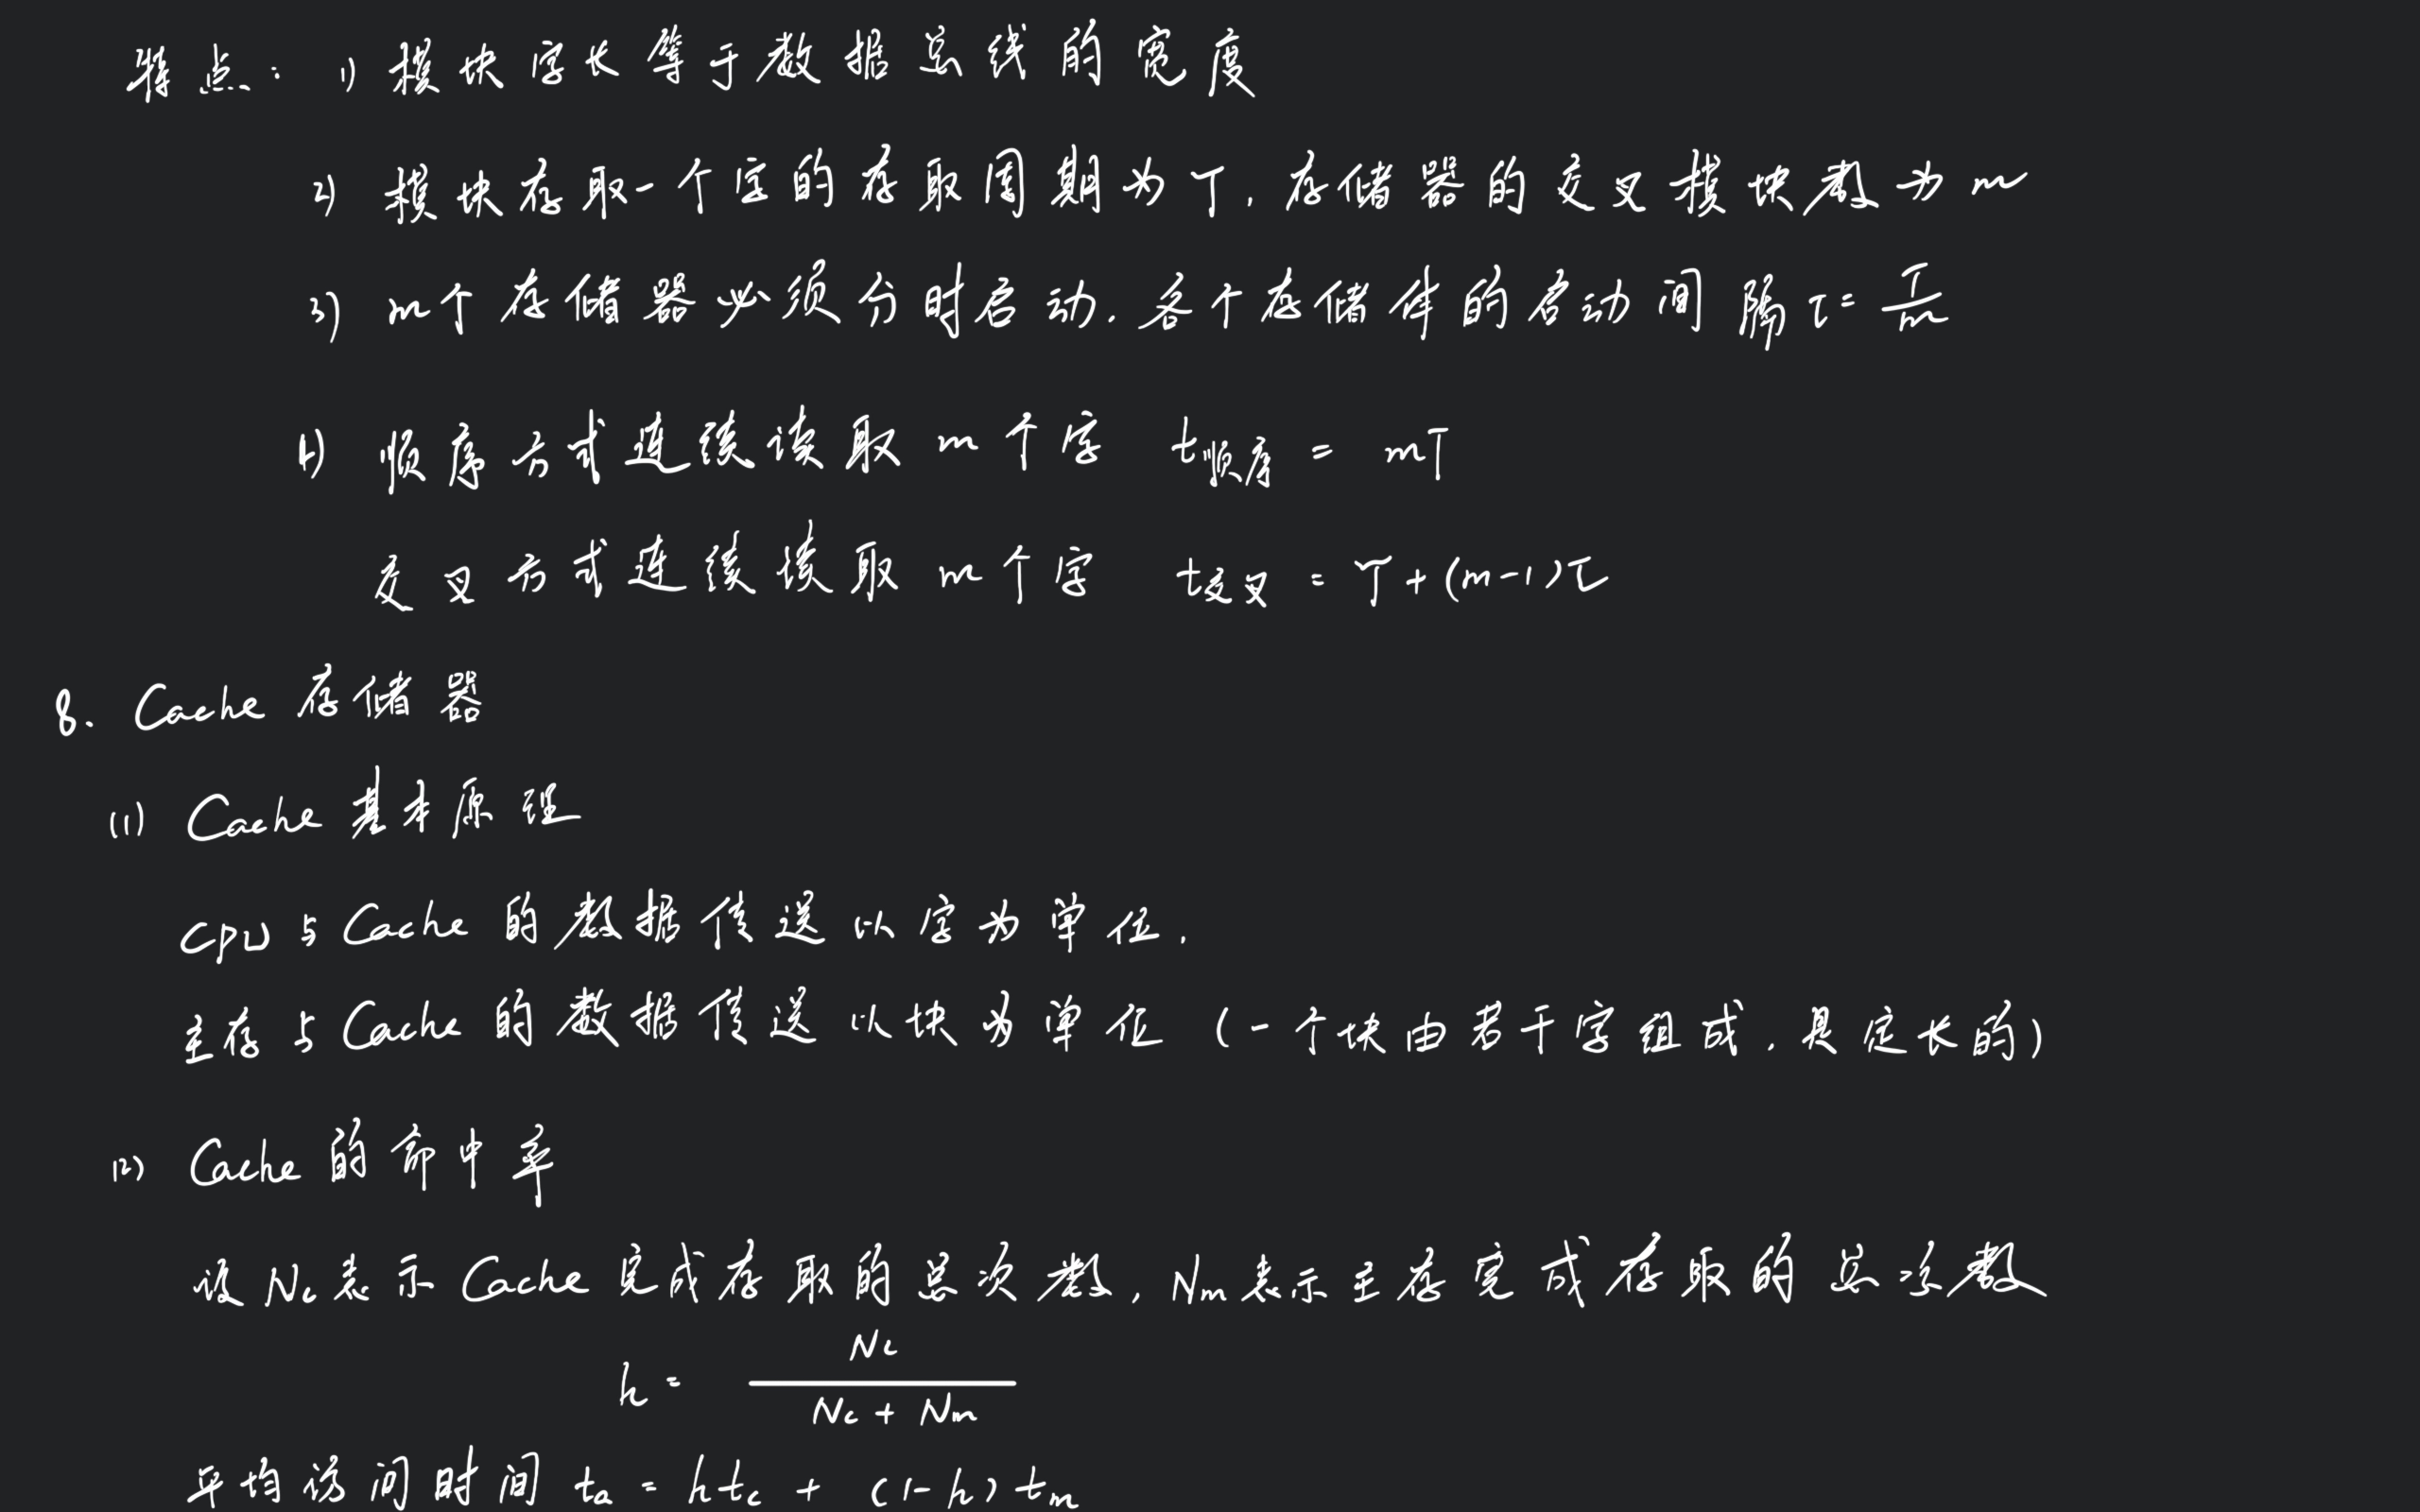 特点：1) 模块字长等于数据总线的宽度
2) 模块存取一个字的存取周期为T，存储器的交叉模块数为m
3) m个存储器必须分时启动，各个存储体的启动间隔τ=T/m
4) 顺序方式连续读取m个字 t顺序 = mT
交叉方式连续读取m个字 t交叉 = T+(m-1)τ
8. Cache存储器
(1) Cache基本原理
CPU与Cache的数据传送以字为单位，
主存与Cache的数据传送以块为单位（一个块由若干字组成，是定长的）
(2) Cache的命中率
设Nc表示Cache完成存取的总次数，Nm表示主存完成存取的总次数
h = Nc/(Nc+Nm)
平均访问时间 ta = htc + (1-h)tm